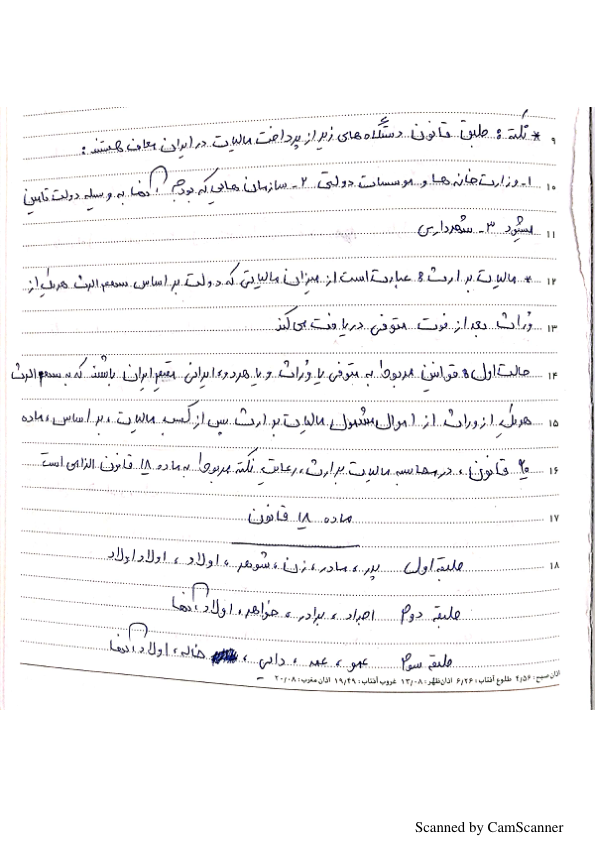 ۹ * نکته: طبق قانون دستگاه های زیر از پرداخت مالیات در ایران معاف هستند:
۱۰ ۱- وزارت خانه ها و موسسات دولتی ۲- سازمان هایی که بودجه آنها به وسیله دولت تامین
۱۱ میشود ۳- شهرداری
۱۲ * مالیات بر ارث: عبارت است از میزان مالیاتی که دولت بر اساس سهم الارث هریک از
۱۳ وُراث بعد از فوت متوفی دریافت می کند
۱۴ حالت اول: قوانین مربوط به متوفی یا وُراث و یا هردو، ایرانی مقیم ایران باشند که به سهم الارث
۱۵ هریک از وراث از اموال مشمول مالیات بر ارث پس از کسب مالیات، بر اساس، ماده
۱۶ ۲۰ قانون، در محاسبه مالیات بر ارث، رعایت نکته مربوط به ماده ۱۸ قانون الزامی است
۱۷ ماده ۱۸ قانون
۱۸ طبقه اول پدر، مادر، زن، شوهر، اولاد، اولاد اولاد
طبقه دوم اجداد، برادر، خواهر، اولاد آنها
طبقه سوم عمو، عمه، دایی، خاله، اولاد آنها
اذان صبح: ۴/۵۶ طلوع آفتاب: ۶/۲۶ اذان ظهر: ۱۳/۰۸ غروب آفتاب: ۱۹/۴۹ اذان مغرب: ۲۰/۰۸
Scanned by CamScanner